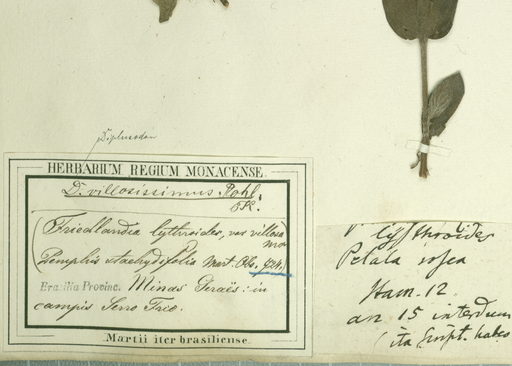 Diplusodon
HERBARIUM REGIUM MONACENSE.
D. villosissimus Pohl.
(Friedlandia lythroides, var villosis
Pemphis stachydifolia Mart. Obs. 824.)
Brasilia Provinc. Minas Geraës: in
campis Serro Frio.
Martii iter brasiliense.
lythroides
Petala rosea
Stam. 12.
an 15 interdum
(ita Script. habeo